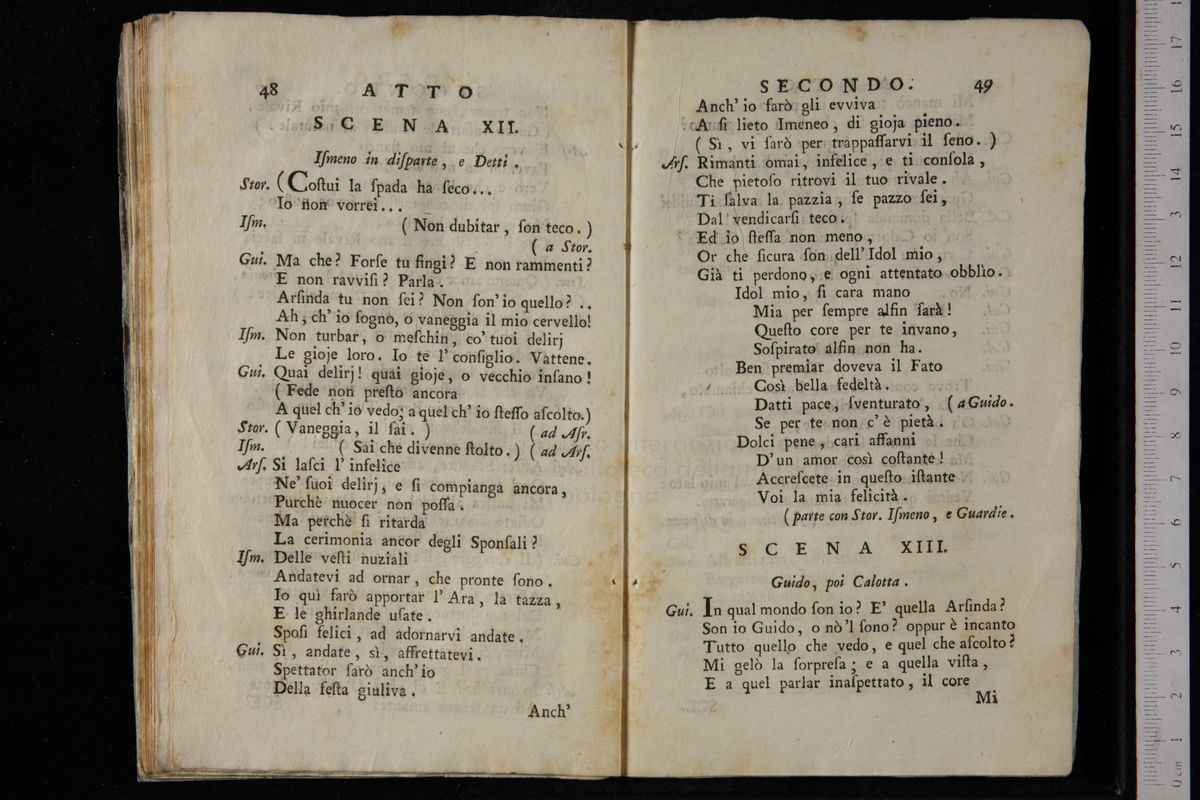 48 ATTO
SCENA XII.
Iſmeno in diſparte, e Detti.
Stor. (Coſtui la ſpada ha ſeco...
Io non vorrei...
Iſm. (Non dubitar, ſon teco.)
(a Stor.
Gui. Ma che? Forſe tu fingi? E non rammenti?
E non ravviſi? Parla.
Arſinda tu non ſei? Non ſon' io quello? ..
Ah, ch' io ſogno, o vaneggia il mio cervello!
Iſm. Non turbar, o meſchin, co' tuoi delirj
Le gioje loro. Io te l' conſiglio. Vattene.
Gui. Quai delirj! quai gioje, o vecchio inſano!
(Fede non preſto ancora
A quel ch' io vedo; a quel ch' io ſteſſo aſcolto.)
Stor. (Vaneggia, il ſai.) (ad Aſr.
Iſm. (Sai che divenne ſtolto.) (ad Arſ.
Arſ. Si laſci l' infelice
Ne' ſuoi delirj, e ſi compianga ancora,
Purchè nuocer non poſſa.
Ma perchè ſi ritarda
La cerimonia ancor degli Sponſali?
Iſm. Delle veſti nuziali
Andatevi ad ornar, che pronte ſono.
Io quì farò apportar l' Ara, la tazza,
E le ghirlande uſate.
Spoſi felici, ad adornarvi andate.
Gui. Sì, andate, sì, affrettatevi.
Spettator ſarò anch' io
Della feſta giuliva.
Anch'
SECONDO. 49
Anch' io farò gli evviva
A ſi lieto Imeneo, di gioja pieno.
(Sì, vi ſarò per trappaſſarvi il ſeno.)
Arſ. Rimanti omai, infelice, e ti conſola,
Che pietoſo ritrovi il tuo rivale.
Ti ſalva la pazzia, ſe pazzo ſei,
Dal vendicarſi teco.
Ed io ſteſſa non meno,
Or che ſicura ſon dell' Idol mio,
Già ti perdono, e ogni attentato obblìo.
Idol mio, ſi cara mano
Mia per ſempre alfin ſarà!
Queſto core per te invano,
Soſpirato alfin non ha.
Ben premiar doveva il Fato
Così bella fedeltà.
Datti pace, ſventurato, (a Guido.
Se per te non c' è pietà.
Dolci pene, cari affanni
D' un amor così coſtante!
Accreſcete in queſto iſtante
Voi la mia felicità.
(parte con Stor. Iſmeno, e Guardie.
SCENA XIII.
Guido, poi Calotta.
Gui. In qual mondo ſon io? E' quella Arſinda?
Son io Guido, o nò 'l ſono? oppur è incanto
Tutto quello che vedo, e quel che aſcolto?
Mi gelò la ſorpreſa; e a quella viſta,
E a quel parlar inaſpettato, il core
Mi